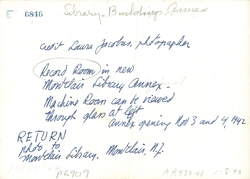 E 6846 Library, Buildings, Annex
credit Laura Jacobus, photographer
Record Room in new
Montclair Library Annex.
Machine Room can be viewed
through glass at left
Annex opening Nov 3 and 4, 1942
RETURN
photo to
Montclair Library, Montclair, N.J.
P6907